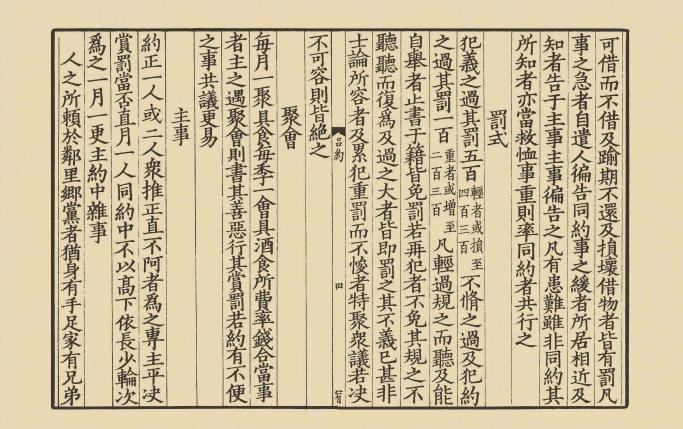 可借而不借及踰期不還及損壞借物者皆有罰凡
事之急者自遣人徧告同約事之緩者所居相近及
知者告于主事主事徧告之凡有患難雖非同約其
所知者亦當救恤事重則率同約者共行之
罰式
犯義之過其罰五百輕者或損至四百三百不脩之過及犯約
之過其罰一百重者或增至二百三百凡輕過規之而聽及能
自舉者止書于籍皆免罰若再犯者不免其規之不
聽聽而復爲及過之大者皆即罰之其不義已甚非
士論所容者及累犯重罰而不悛者特聚衆議若决
呂約
四
不可容則皆絶之
聚會
每月一聚具食每季一會具酒食所費率錢合當事
者主之遇聚會則書其善惡行其賞罰若約有不便
之事共議更易
主事
約正一人或二人衆推正直不阿者爲之專主平决
賞罰當否直月一人同約中不以髙下依長少輪次
爲之一月一更主約中雜事
人之所賴於鄰里鄉黨者猶身有手足家有兄弟